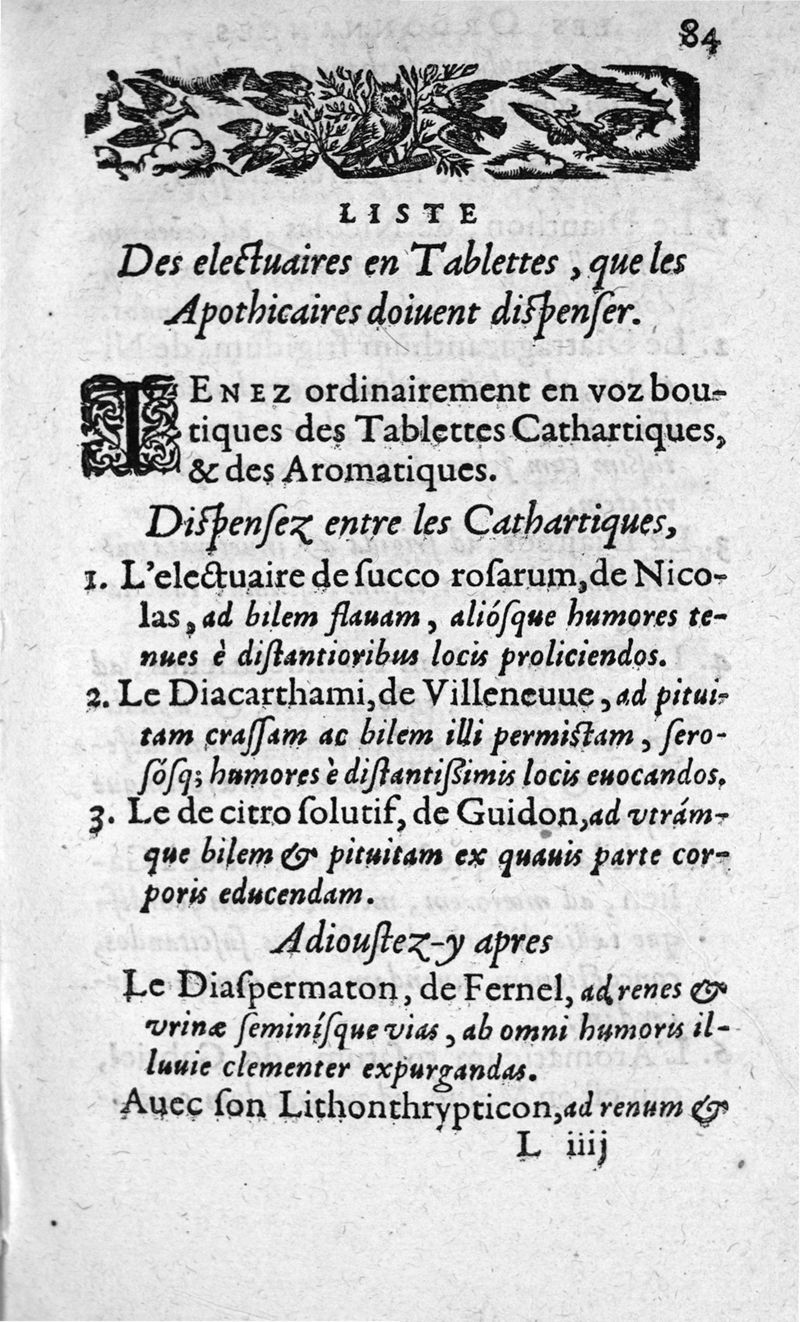 84
LISTE
Des electuaires en Tablettes, que les
Apothicaires doiuent dispenſer.
TENEZ ordinairement en voz bou-
tiques des Tablettes Cathartiques,
& des Aromatiques.
Dispenſez entre les Cathartiques,
1. L'electuaire de ſucco roſarum, de Nico-
las, ad bilem flauam, alióſque humores te-
nues è diſtantioribus locis proliciendos.
2. Le Diacarthami, de Villeneuue, ad pitui-
tam craſſam ac bilem illi permiſtam, ſero-
ſóſq; humores è diſtantiſſimis locis euocandos.
3. Le de citro ſolutif, de Guidon, ad vtrám-
que bilem & pituitam ex quauis parte cor-
poris educendam.
Adiouſtez-y apres
Le Diaſpermaton, de Fernel, ad renes &
vrinæ ſeminíſque vias, ab omni humoris il-
luuie clementer expurgandas.
Auec ſon Lithonthrypticon, ad renum &
L iiij